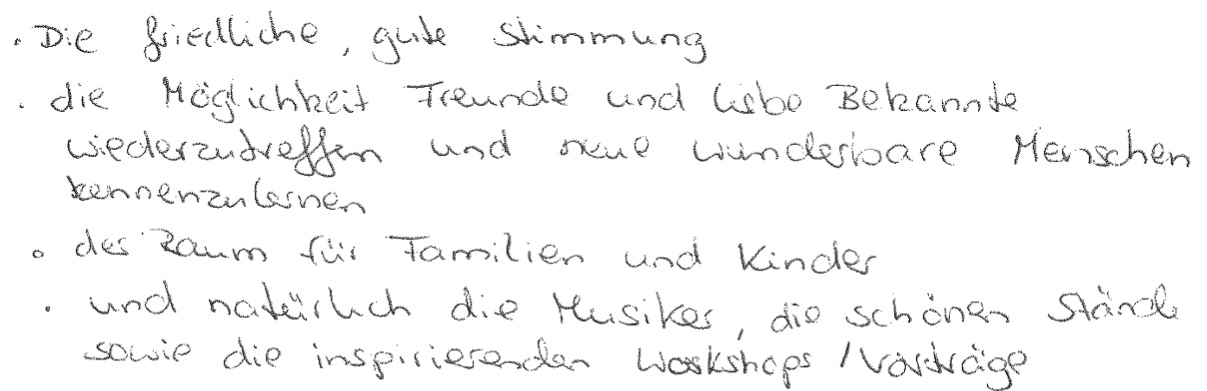 · Die friedliche, gute Stimmung
· die Möglichkeit Freunde und liebe Bekannte
wiederzutreffen und neue wunderbare Menschen
kennenzulernen
· der Raum für Familien und Kinder
· und natürlich die Musiker, die schönen Stände
sowie die inspirierenden Workshops / Vorträge